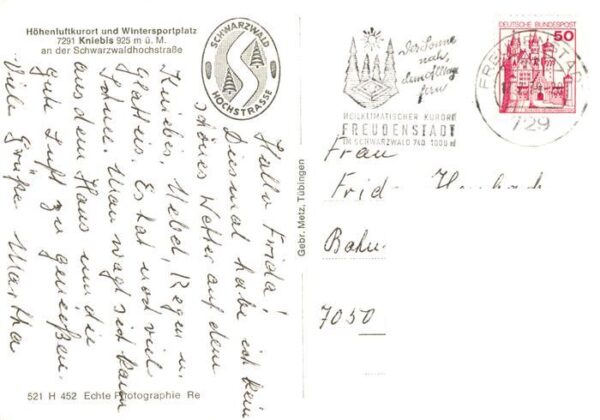 Höhenluftkurort und Wintersportplatz
7291 Kniebis 925 m ü. M.
an der Schwarzwaldhochstraße
SCHWARZWALD
HOCHSTRASSE
Hallo Frida!
Diesmal habe ich kein
schönes Wetter auf dem
Kniebis. Nebel, Regen u.
Glatteis. Es hat noch viel
Schnee. Man wagt sich kaum
aus dem Haus um die
gute Luft zu genießen.
Viele Grüße Martha
521 H 452 Echte Photographie Re
Gebr. Metz, Tübingen
Der Sonne
nah,
dem Alltag
fern
HEILKLIMATISCHER KURORT
FREUDENSTADT
IM SCHWARZWALD 740-1000 m
DEUTSCHE BUNDESPOST
50
FREUDENSTADT
729
Frau
Frid
Bahn
7050